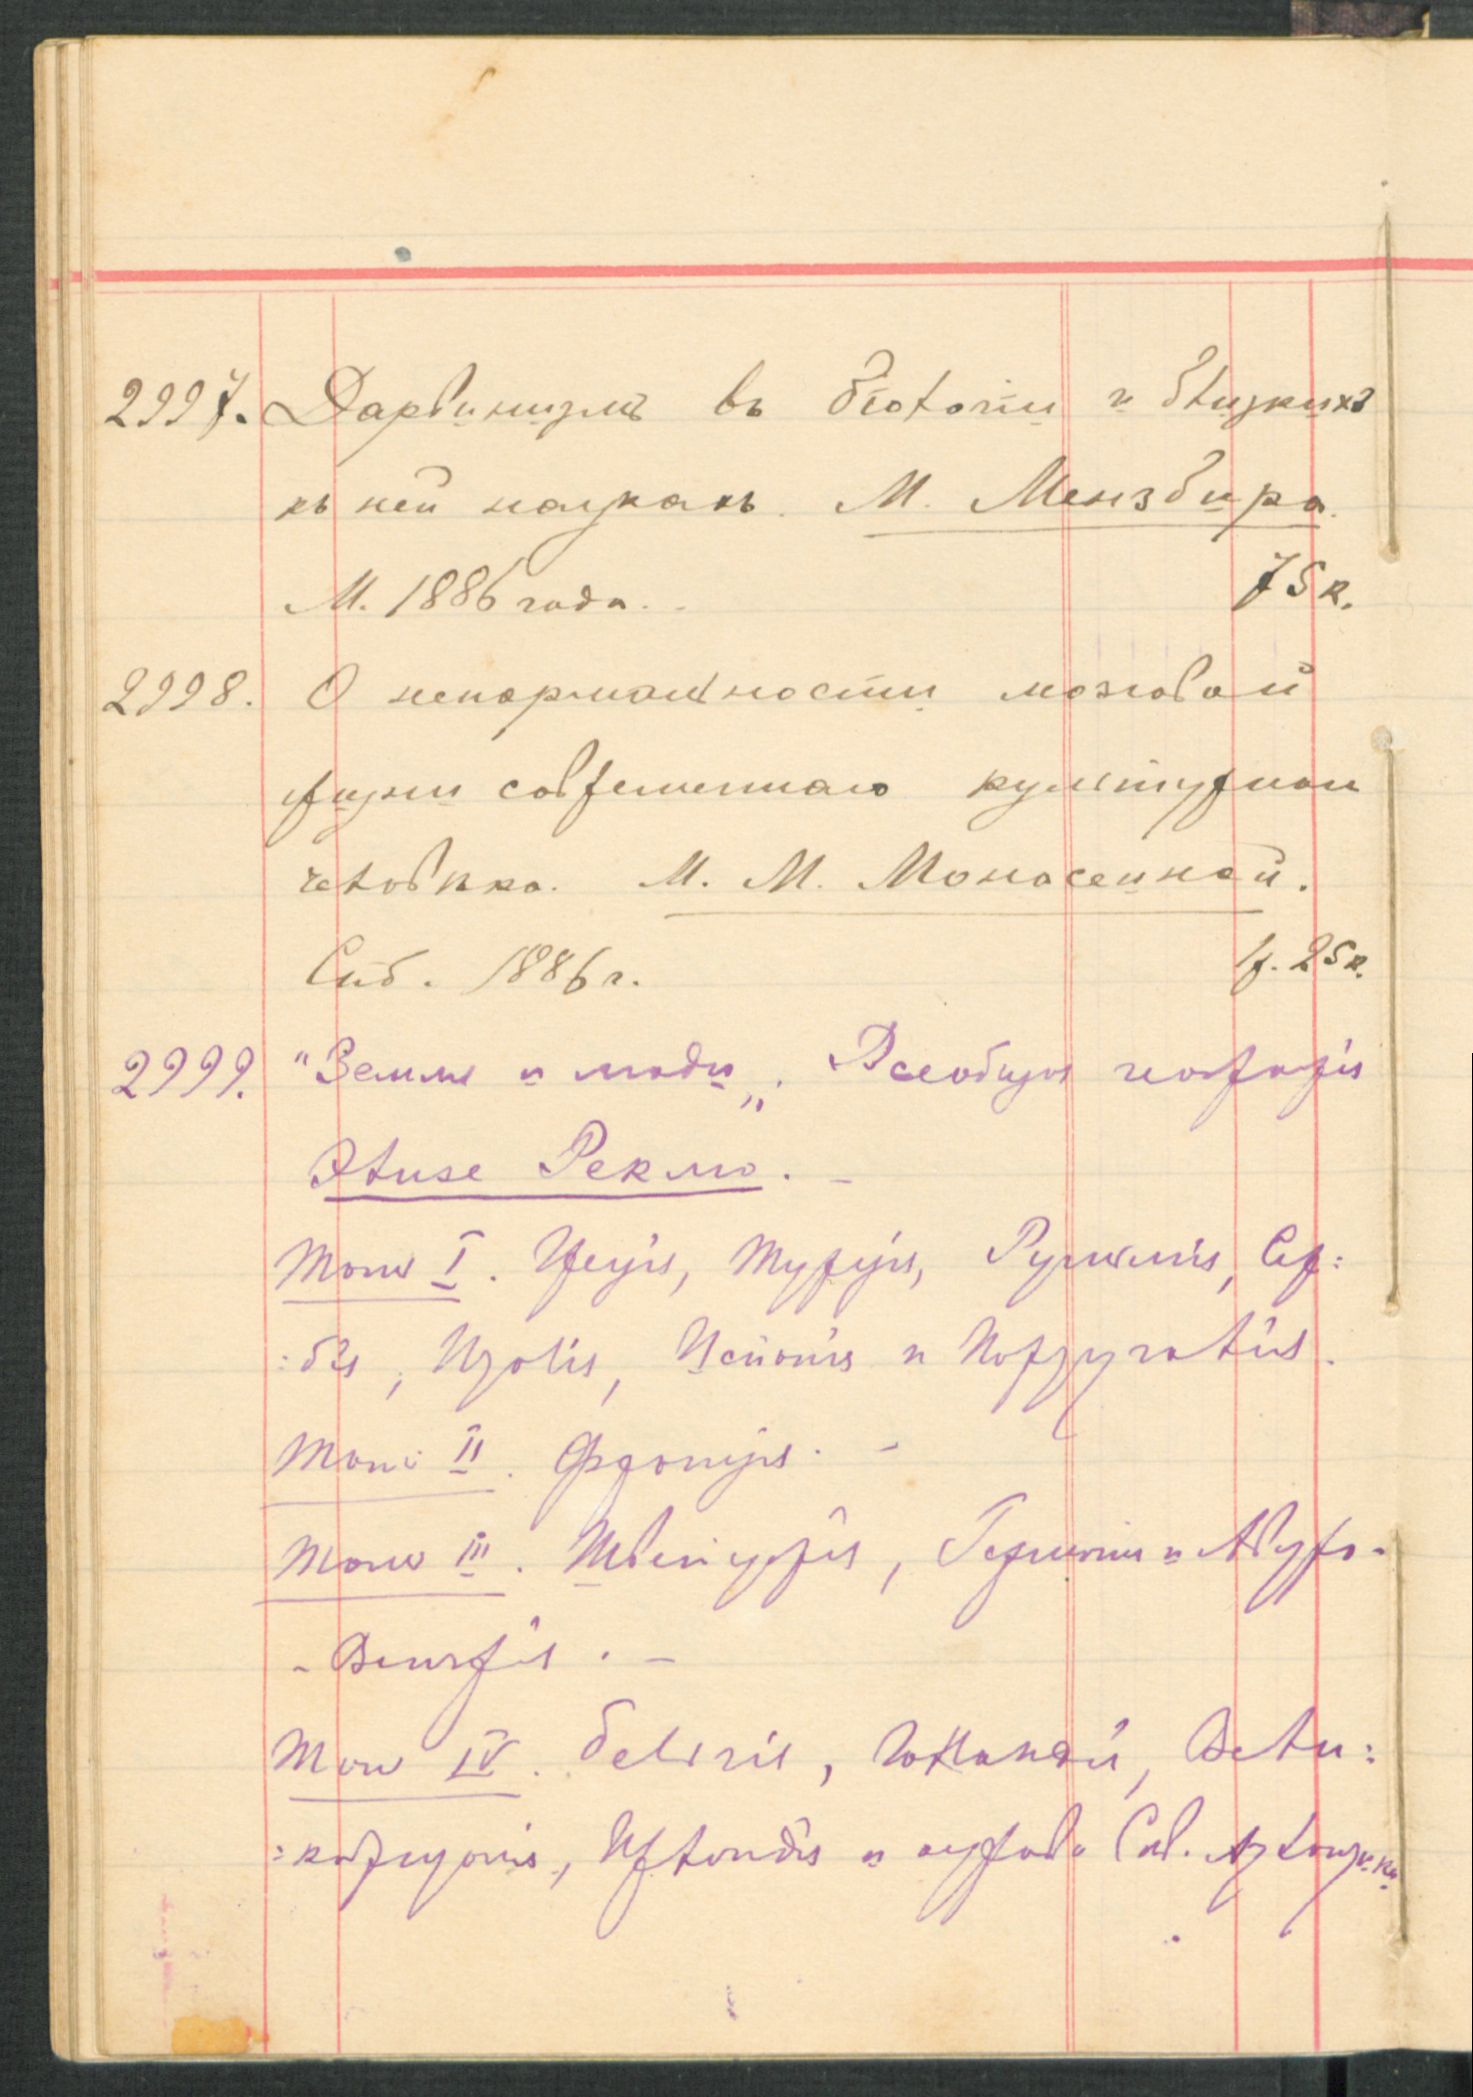 2997. Дарвинизмъ въ біологіи и близкихъ
къ ней наукахъ. М. Мензбира.
М. 1886 года. 75 к.
2998. О ненормальности мозговой
жизни современнаго культурнаго
человѣка. М. М. Манасеиной.
Спб. 1886 г. 1 р. 25 к.
2999. "Земля и люди„. Всеобщая географія
Элизе Реклю. –
Томъ I. Греція, Турція, Румынія, Сер:
:бія, Италія, Испанія и Португалія.
Томъ II. Франція. –
Томъ III. Швейцарія, Германія и Австро-
- Венгрія. –
Томъ IV. Бельгія, Голландія, Вели:
:кобританія, Ирландія и острова Сѣв.